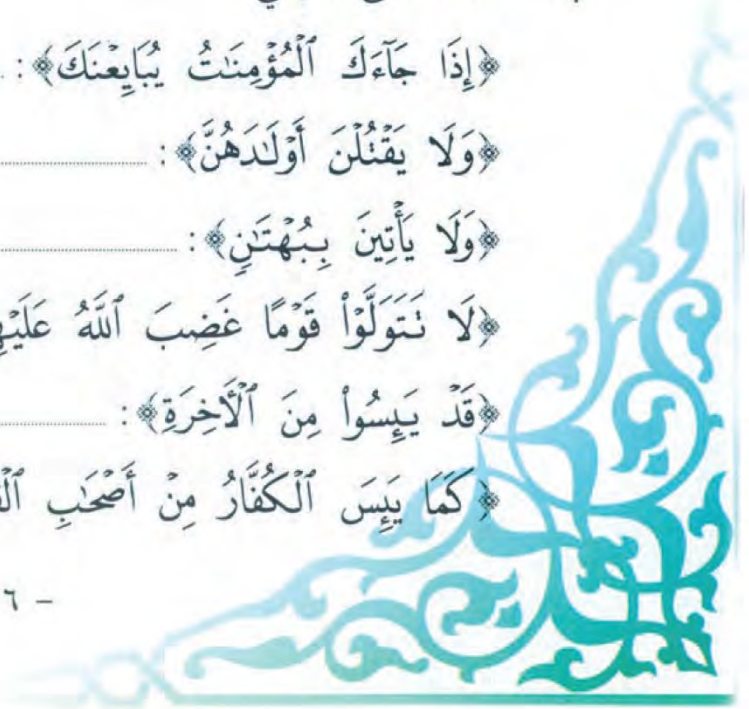 ﴿إِذَا جَآءَكَ ٱلْمُؤْمِنَٰتُ يُبَايِعْنَكَ﴾: ..
﴿وَلَا يَقْتُلْنَ أَوْلَٰدَهُنَّ﴾: ..............................
﴿وَلَا يَأْتِينَ بِبُهْتَٰنٍ﴾: ..............................
﴿لَا تَتَوَلَّوْا۟ قَوْمًا غَضِبَ ٱللَّهُ
﴿قَدْ يَئِسُوا۟ مِنَ ٱلْءَاخِرَةِ﴾: ..............................
﴿كَمَا يَئِسَ ٱلْكُفَّارُ مِنْ أَصْحَٰبِ
٦ -